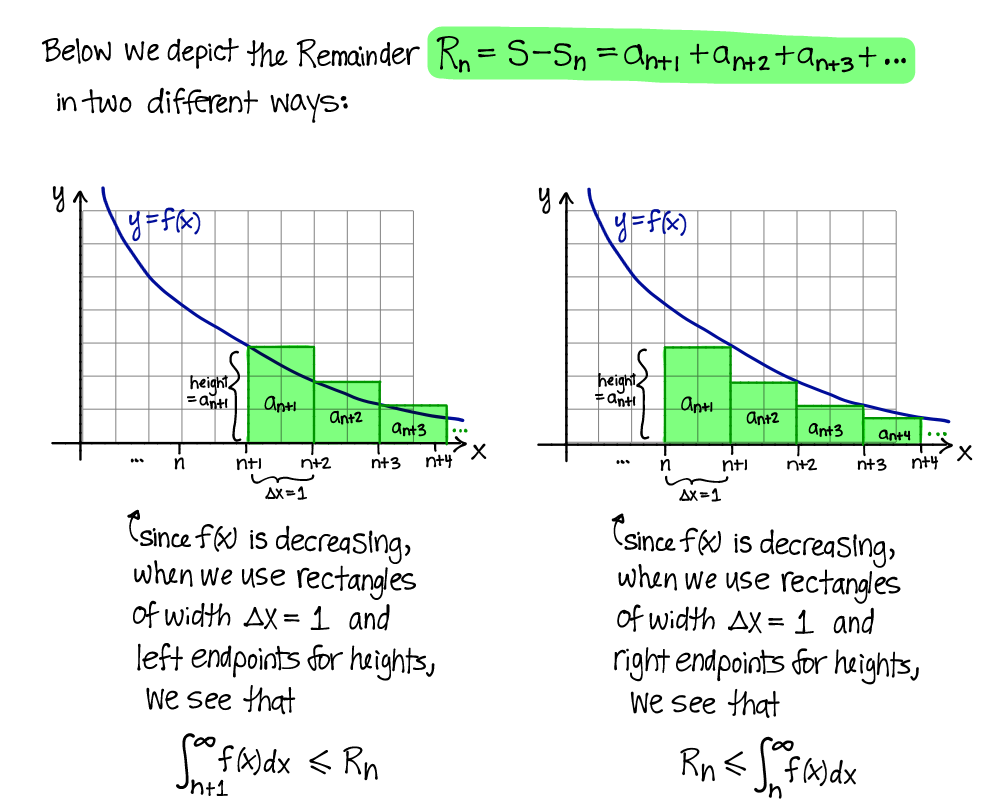 Below we depict the Remainder Rₙ = S − Sₙ = aₙ₊₁ + aₙ₊₂ + aₙ₊₃ + ...
in two different ways:
y
y = f(x)
height
= aₙ₊₁
aₙ₊₁
aₙ₊₂
aₙ₊₃
...
x
... n n+1 n+2 n+3 n+4
Δx = 1
since f(x) is decreasing,
when we use rectangles
of width Δx = 1 and
left endpoints for heights,
we see that
∫ₙ₊₁^∞ f(x)dx ⩽ Rₙ
y
y = f(x)
height
= aₙ₊₁
aₙ₊₁
aₙ₊₂
aₙ₊₃
aₙ₊₄
...
x
... n n+1 n+2 n+3 n+4
Δx = 1
since f(x) is decreasing,
when we use rectangles
of width Δx = 1 and
right endpoints for heights,
we see that
Rₙ ⩽ ∫ₙ^∞ f(x)dx